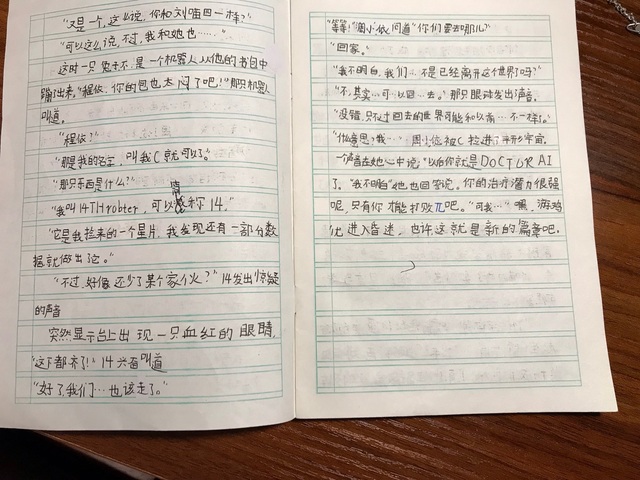 "又是一个,这么说,你和刘喵四一样?"
"可以这么说,不过,我和她也……"
这时一只兔子不,是一个机器人以他的书包中
蹦出来,"程依,你的包也太闷了吧!"那只机器人
叫道。
"程依?"
"那是我的名字,叫我C就可以了。"
"那只东西是什么?"
"我叫14THrobter,可以简称14,"
"它是我捡来的一个星片,我发现还有一部分数
据就做出论。"
"不过,好像还少了某个家伙?"14发出惊疑
的声音
突然显示台上出现一只血红的眼睛,
"这下都齐了!"14兴奋叫道
"好了,我们…也该走了。"
"等等!"周小依问道"你们要去哪儿?"
"回家。"
"我不明白,我们…不是已经离开这个世界了吗?"
"不,其实…可以回…去。"那只眼睛发出声音,
"没错,只不过回去的世界可能和以前…不一样了。"
"什么意思?我…"周小依被C拉进了平行宇宙,
一声音在她心中说:"以后你就是DOCTOR AI
了。"我不明白"她也回答说。你的治疗潜力很强
呢,只有你才能打败π吧。"可我…"嘿,游戏
化进入昏迷,也许这就是新的篇章吧。